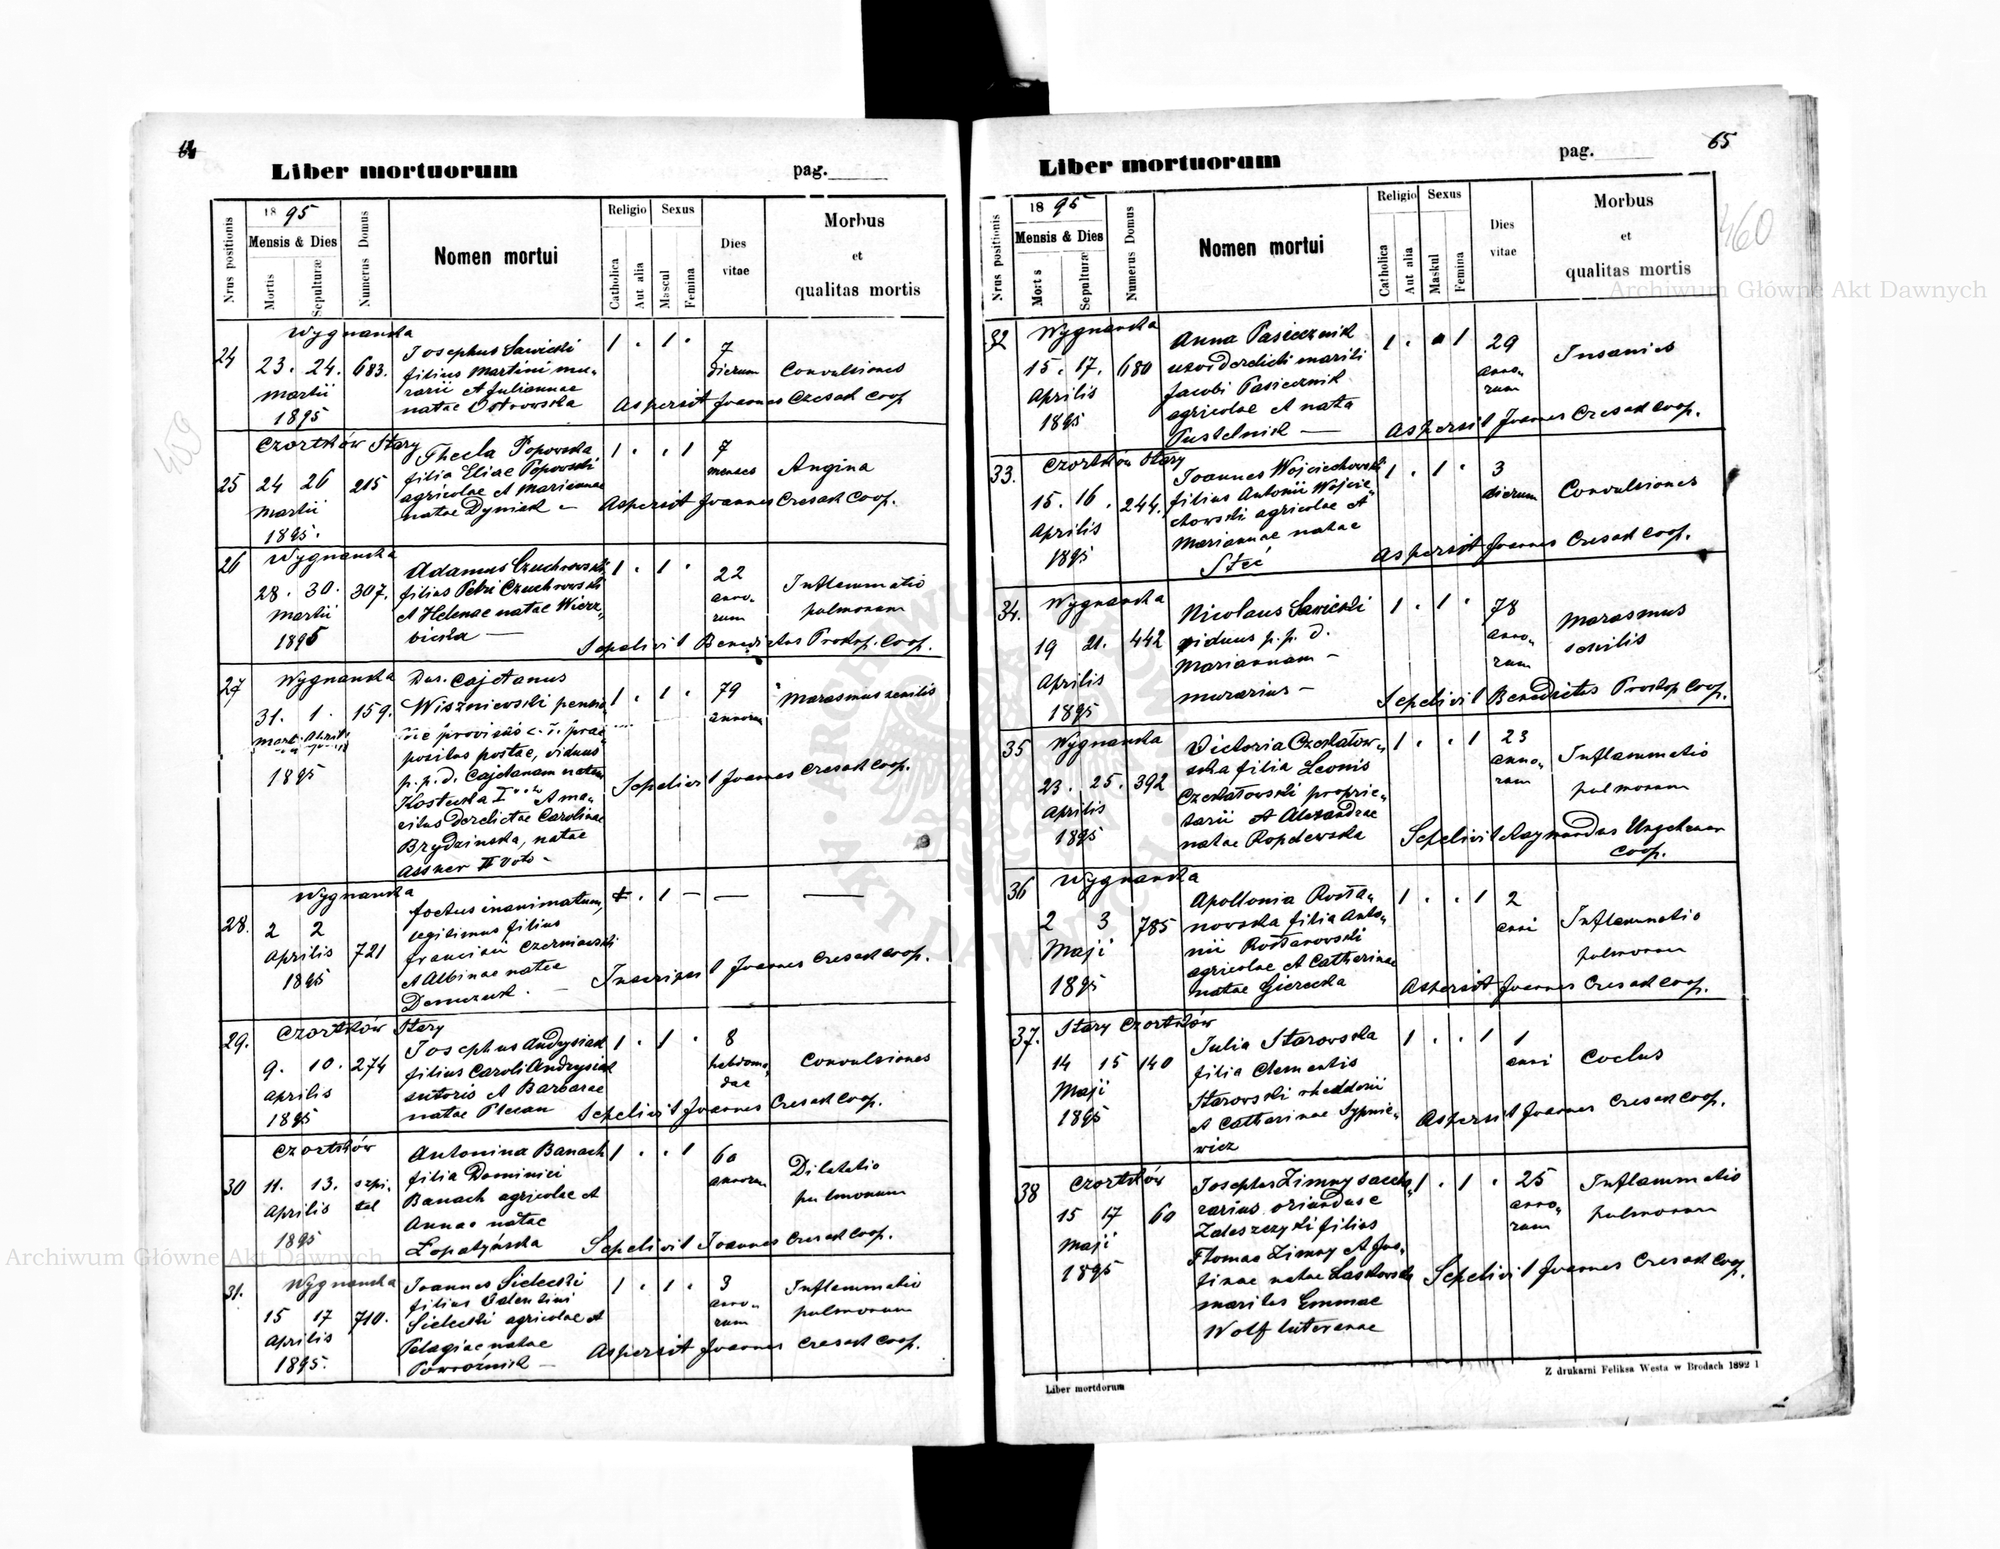 64
Liber mortuorum
pag.
Nrus positionis
1895
Mensis & Dies
Mortis
Sepulturæ
Numerus Domus
Nomen mortui
Religio
Catholica
Aut alia
Sexus
Mascul
Femina
Dies
vitae
Morbus
et
qualitas mortis
459
24
Wygnanka
23. 24. 683.
Martii
1895
Josephus Sawicki
filius Martini mu-
rarii et Juliannae
natae Ostrowska
1 . 1 .
7
dierum
Convulsiones
Aspersit Joannes Czesak Coop
25
Czortków Stary
24 26 215
Martii
1895.
Thecla Popowska
filia Eliae Popowski
agricolae et Mariannae
natae Dyniak -
1 . . 1
7
menses
Angina
Aspersit Joannes Czesak Coop.
26
Wygnanka
28. 30. 307.
Martii
1895
Adamus Czuchrowski
filius Petri Czuchrowski
et Helenae natae Wierz-
bicka -
1 . 1 .
22
anno-
rum
Inflammatio
pulmonum
Sepelivit Benedictus Prokop. Coop.
27
Wygnanka
31. 1. 159.
Mart. Aprilis
1895
Dus. Cajetanus
Wiszniewski pensio-
positus postae, viduus
p. p. d. Cajetanam natam
Kostecka I et ma-
ritus derelictae Carolinae
Brydzinska, natae
Assner II voto -
1 . 1 .
79
annorum
Marasmus senilis
Sepelivit Joannes Czesak Coop.
28.
Wygnanka
2 2
Aprilis 721
1895
foetus inanimatum,
legitimus filius
Francisci Czerniawski
et Albinae natae
Demczuk. -
1 -
—
—
Inscripsit Joannes Czesak Coop.
29.
Czortków Stary
9. 10. 274
Aprilis
1895
Josephus Andrysiak
filius Caroli Andrysiak
sutoris et Barbarae
natae Plecan
1 . 1 .
8
hebdoma-
dae
Convulsiones
Sepelivit Joannes Czesak Coop.
30
Czortków
11. 13. szpi-
Aprilis tal
1895
Antonina Banach
filia Dominici
Banach agricolae et
Annae natae
Łopatyńska
1 . . 1
60
annorum
Dilatatio
pulmonum
Sepelivit Joannes Czesak Coop.
31.
Wygnanka
15 17 710.
Aprilis
1895.
Joannes Sielecki
filius Valentini
Sielecki agricolae et
Pelagiae natae
Powroźnik -
1 . 1 .
3
anno-
rum
Inflammatio
pulmonum
Aspersit Joannes Czesak Coop.
65
Liber mortuorum
pag.
460
Nrus positionis
1895
Mensis & Dies
Mortis
Sepulturæ
Numerus Domus
Nomen mortui
Religio
Catholica
Aut alia
Sexus
Maskul
Femina
Dies
vitae
Morbus
et
qualitas mortis
32
Wygnanka
15. 17. 680
Aprilis
1895
Anna Pasiecznik
uxor derelicti mariti
Jacobi Pasiecznik
agricolae et nata
Pustelnik —
1 . 1
29
anno-
rum
Insanies
Aspersit Joannes Czesak Coop.
33.
Czortków Stary
15. 16. 244.
Aprilis
1895
Joannes Wojciechowski
filius Antonii Wojcie-
chowski agricolae et
Mariannae natae
Steć
1 . 1 .
3
dierum
Convulsiones
Aspersit Joannes Czesak Coop.
34.
Wygnanka
19 21. 442
Aprilis
1895
Nicolaus Sawicki
viduus p. p. d.
Mariannam -
murarius -
1 . 1 .
78
anno-
rum
Marasmus
senilis
Sepelivit Benedictus Prokop Coop.
35
Wygnanka
23. 25. 392
Aprilis
1895
Victoria Czekałow-
ska filia Leonis
Czekałowski proprie-
tarii et Alexandrae
natae Kopdewska
1 . . 1
23
anno-
rum
Inflammatio
pulmonum
Sepelivit Raymundus Ungeheuer
Coop.
36
Wygnanka
2 3 785
Maji
1895
Apollonia Rosta-
nowska filia Anto-
nii Rostanowski
agricolae et Catharinae
natae Gierecka
1 . . 1
2
anni
Inflammatio
pulmonum
Aspersit Joannes Czesak Coop.
37.
Stary Czortków
14 15 140
Maji
1895
Julia Starowska
filia Clementis
Starowski rhedarii
et Catharinae Sypnie-
wicz
1 . . 1
1
anni
Coclus
Aspersit Joannes Czesak Coop.
38
Czortków
15 17 60
Maji
1895
Josephus Zimny sacch-
rarius oriundus e
Zaleszczyki filius
Thomae Zimny et Jus-
tinae natae Laskowska
maritus Emmae
Wolf luteranae
1 . 1 .
25
anno-
rum
Inflammatio
pulmonum
Sepelivit Joannes Czesak Coop.
Liber mortdorum
Z drukarni Feliksa Westa w Brodach 1892 l
Archiwum Główne Akt Dawnych
Archiwum Główne Akt Dawnych
ARCHIWUM GŁÓWNE
AKT DAWNYCH